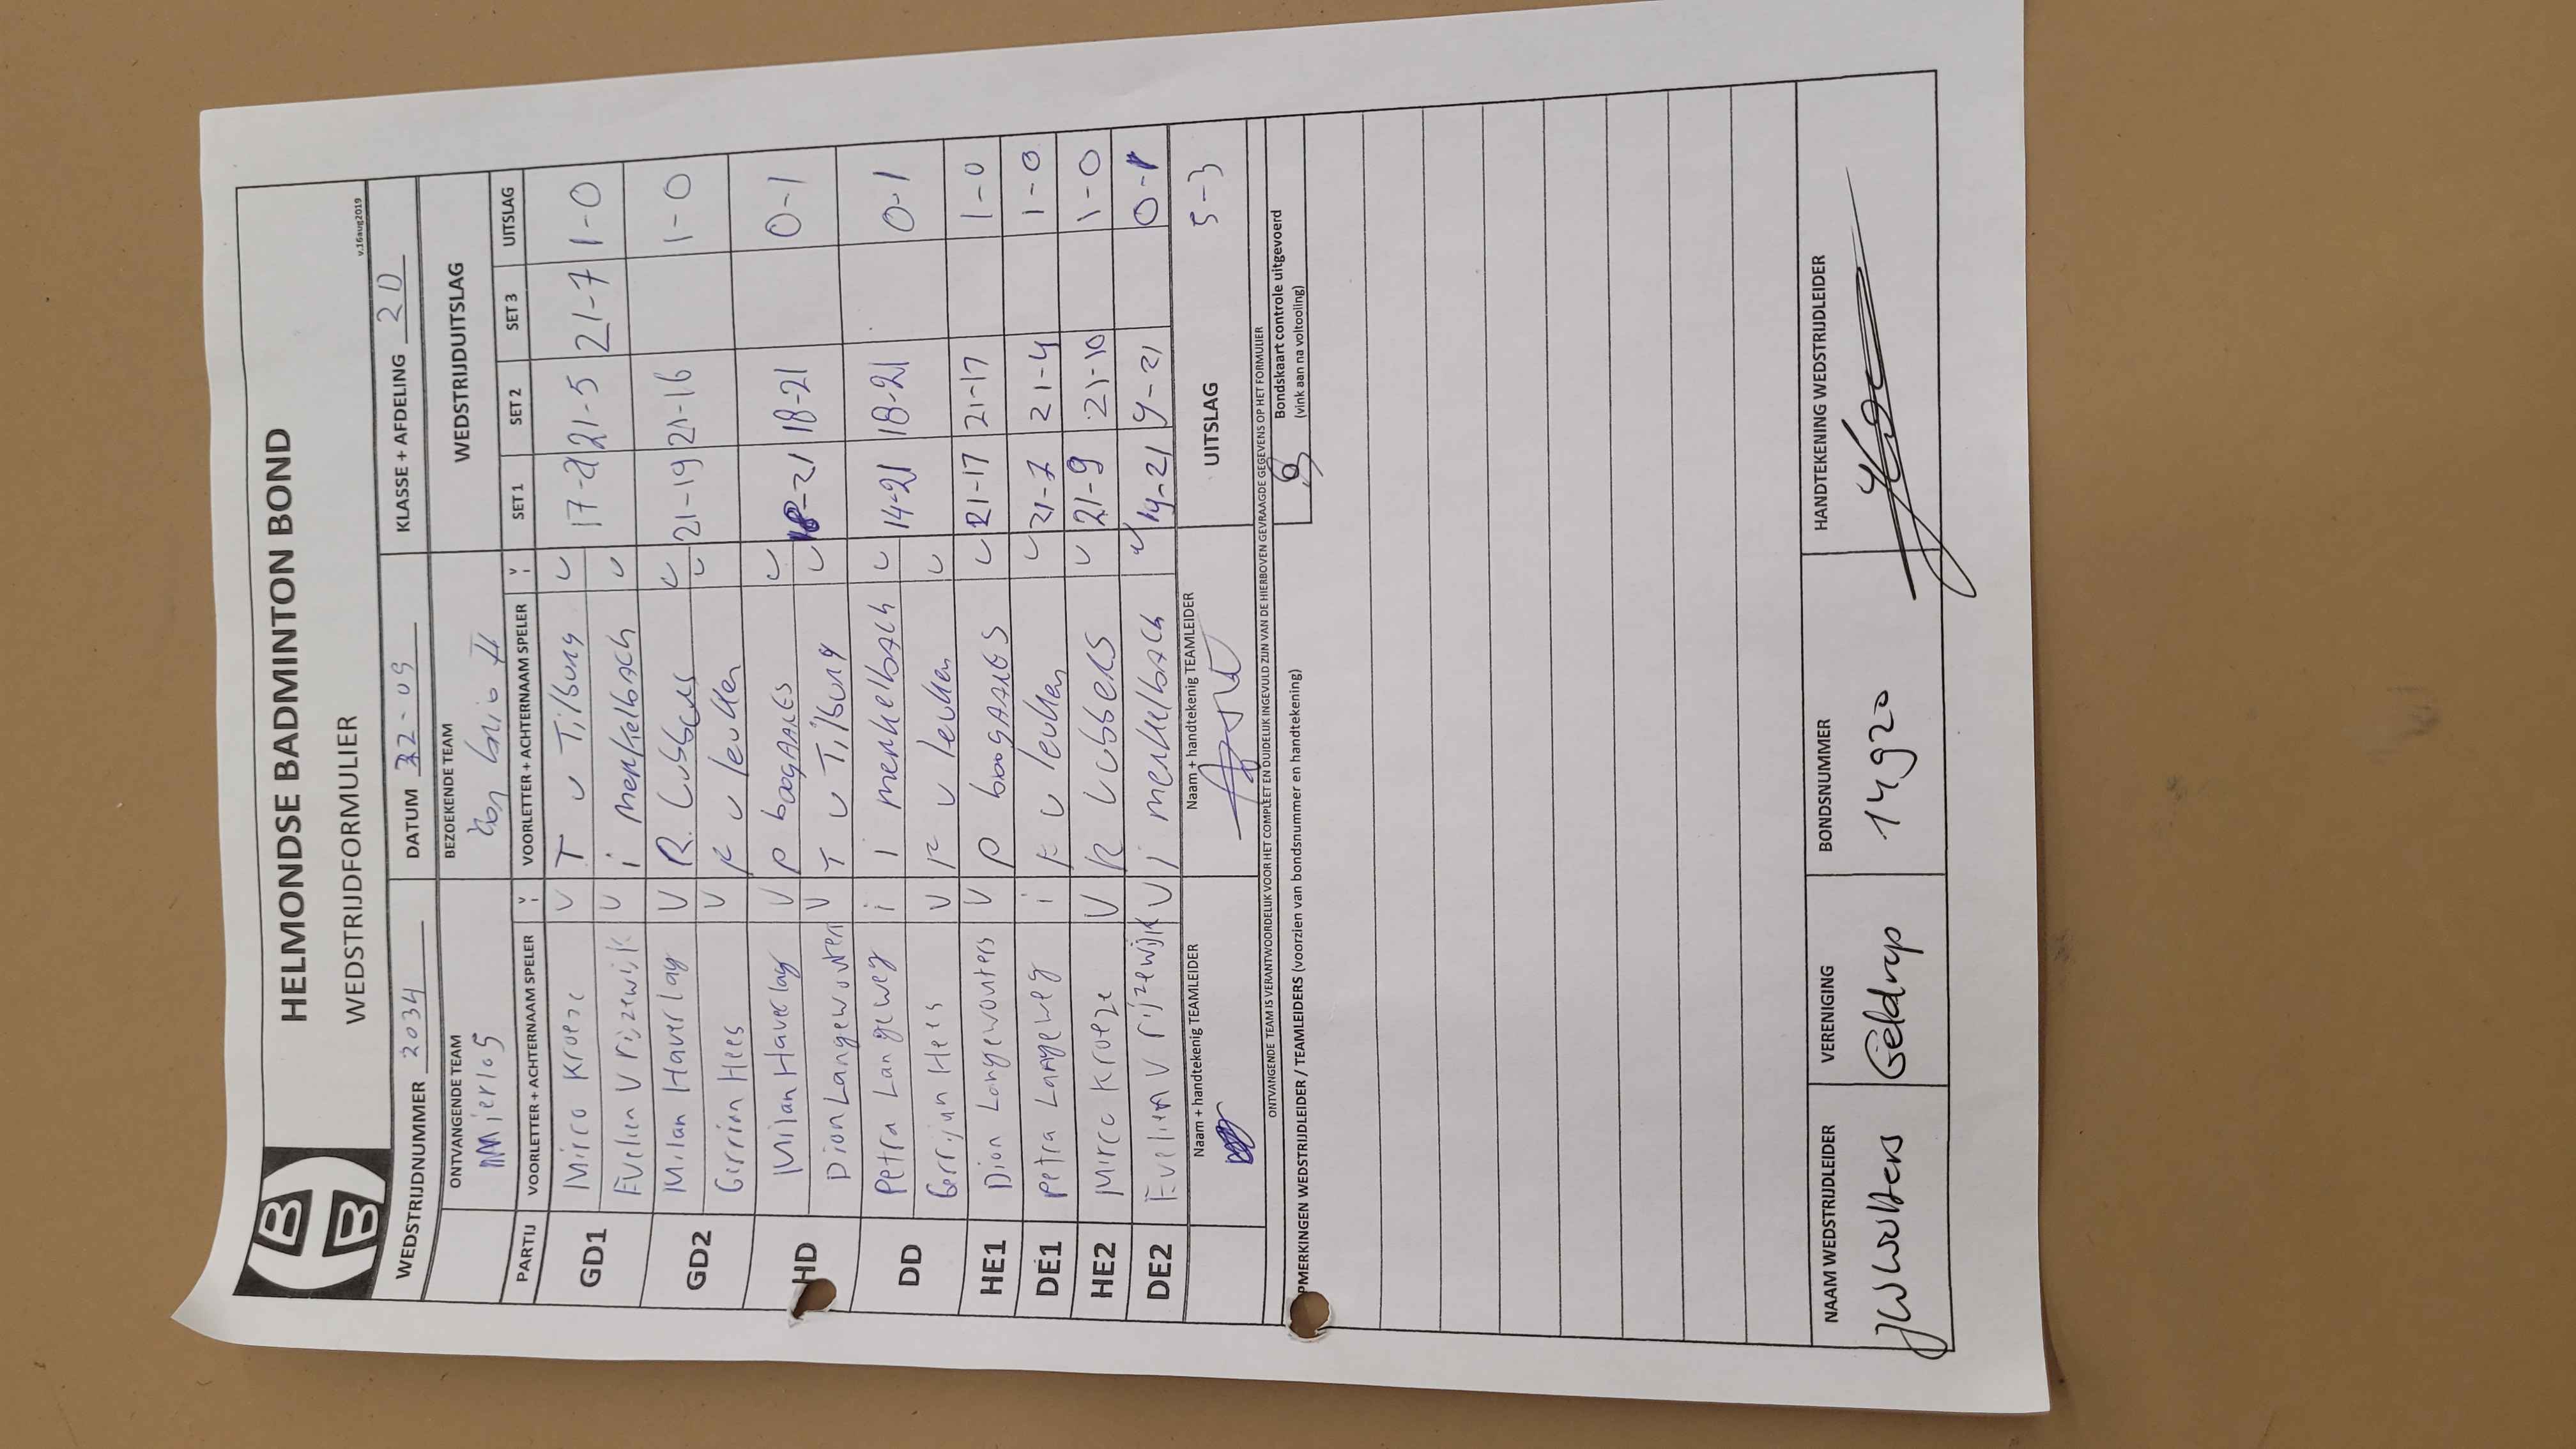 HELMONDSE BADMINTON BOND
WEDSTRIJDFORMULIER
v.16aug2019
WEDSTRIJDNUMMER 2034 DATUM 22-09 KLASSE + AFDELING 2D
ONTVANGENDE TEAM BEZOEKENDE TEAM WEDSTRIJDUITSLAG
Mierlo 5
PARTIJ VOORLETTER + ACHTERNAAM SPELER V VOORLETTER + ACHTERNAAM SPELER V SET 1 SET 2 SET 3 UITSLAG
GD1 Mirco Kroeze V T v Tilburg V 17-21 21-5 21-7 1-0
Evelien V Rijzewijk V i merkelbach V
GD2 Milan Haverlag V R. Lubbers V 21-19 21-16 1-0
Gerrien Hees V K v leuken V
HD Milan Haverlag V P boogAARts V 18-21 18-21 0-1
Dion Langewouters V T v Tilburg V
DD Petra Langeweg i I merkelbach V 14-21 18-21 0-1
Gerrijun Hees V K v leuken V
HE1 Dion Langewouters V P boogAARts V 21-17 21-17 1-0
DE1 Petra Langeweg i K v leuken V 21-7 21-4 1-0
HE2 Mirco Kroeze V R Lubbers V 21-9 21-10 1-0
DE2 Evelien V Rijzewijk V i merkelbach V 14-21 9-21 0-1
Naam + handtekenig TEAMLEIDER Naam + handtekenig TEAMLEIDER UITSLAG 5-3
ONTVANGENDE TEAM IS VERANTWOORDELIJK VOOR HET COMPLEET EN DUIDELIJK INGEVULD ZIJN VAN DE HIERBOVEN GEVRAAGDE GEGEVENS OP HET FORMULIER
PMERKINGEN WEDSTRIJDLEIDER / TEAMLEIDERS (voorzien van bondsnummer en handtekening)
Bondskaart controle uitgevoerd
(vink aan na voltooiing)
NAAM WEDSTRIJDLEIDER VERENIGING BONDSNUMMER HANDTEKENING WEDSTRIJDLEIDER
JW Wolters Geldrop 14920